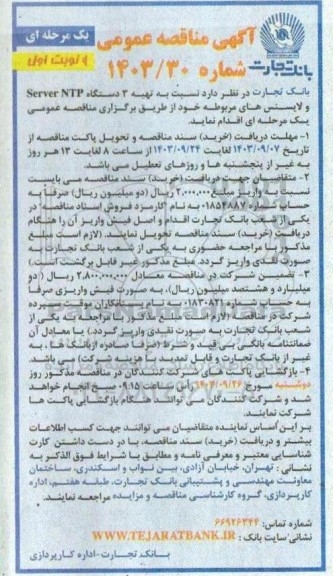 آگهی مناقصه عمومی
یک مرحله ای
نوبت اول
شماره ۱۴۰۳/۳۰
بانک تجارت
بانک تجارت در نظر دارد نسبت به تهیه ۳ دستگاه Server NTP
و لایسنس های مربوطه خود از طریق برگزاری مناقصه عمومی
یک مرحله ای اقدام نماید.
۱- مهلت دریافت (خرید) سند مناقصه و تحویل پاکت مناقصه از
تاریخ ۱۴۰۳/۰۹/۰۷ لغایت ۱۴۰۳/۰۹/۲۴ از ساعت ۸ لغایت ۱۳ هر روز
به غیر از پنجشنبه ها و روزهای تعطیل می باشد.
۲- متقاضیان جهت دریافت (خرید) سند مناقصه می بایست
نسبت به واریز مبلغ ۲،۰۰۰،۰۰۰ ریال (دو میلیون ریال) صرفاً به
حساب شماره ۰۱۸۵۴۸۸۷ به نام "کارمزد فروش اسناد مناقصه" در
یکی از شعب بانک تجارت اقدام و اصل فیش واریز آن را هنگام
دریافت (خرید) سند مناقصه تحویل نمایند. (لازم است مبلغ
مذکور با مراجعه حضوری به یکی از شعب بانک تجارت به
صورت نقدی واریز گردد. مبلغ مذکور غیر قابل برگشت است)
۳- تضمین شرکت در مناقصه معادل ۲،۸۰۰،۰۰۰،۰۰۰ ریال (دو
میلیارد و هشتصد میلیون ریال)، به صورت فیش واریزی صرفاً
به حساب شماره ۰۱۸۳۰۸۲۱ به نام بستانکاران موقت سپرده
شرکت در مناقصه (لازم است مبلغ مذکور با مراجعه به یکی از
شعب بانک تجارت به صورت نقدی واریز گردد.) یا معادل آن
ضمانتنامه بانکی بی قید و شرط (صرفاً صادره از بانک ها، به
غیر از بانک تجارت و قابل تمدید با هزینه شرکت) می باشد.
۴- بازگشایی پاکت های شرکت کنندگان در مناقصه مذکور روز
دوشنبه مورخ ۱۴۰۳/۰۹/۲۶ راس ساعت ۰۹:۱۵ صبح انجام خواهد
شد و شرکت کنندگان می توانند هنگام بازگشایی پاکت ها
شرکت نمایند.
بر این اساس نماینده متقاضیان می توانند جهت کسب اطلاعات
بیشتر و دریافت (خرید) سند مناقصه، با در دست داشتن کارت
شناسایی معتبر و معرفی نامه و مطابق با شرایط فوق الذکر به
نشانی: تهران، خیابان آزادی، بین نواب و اسکندری، ساختمان
معاونت مهندسی و پشتیبانی بانک تجارت، طبقه هفتم، اداره
کارپردازی، گروه کارشناسی مناقصه و مزایده مراجعه نمایند.
شماره تماس: ۶۶۹۲۶۳۴۴
نشانی سایت بانک: WWW.TEJARATBANK.IR
بانک تجارت-اداره کارپردازی